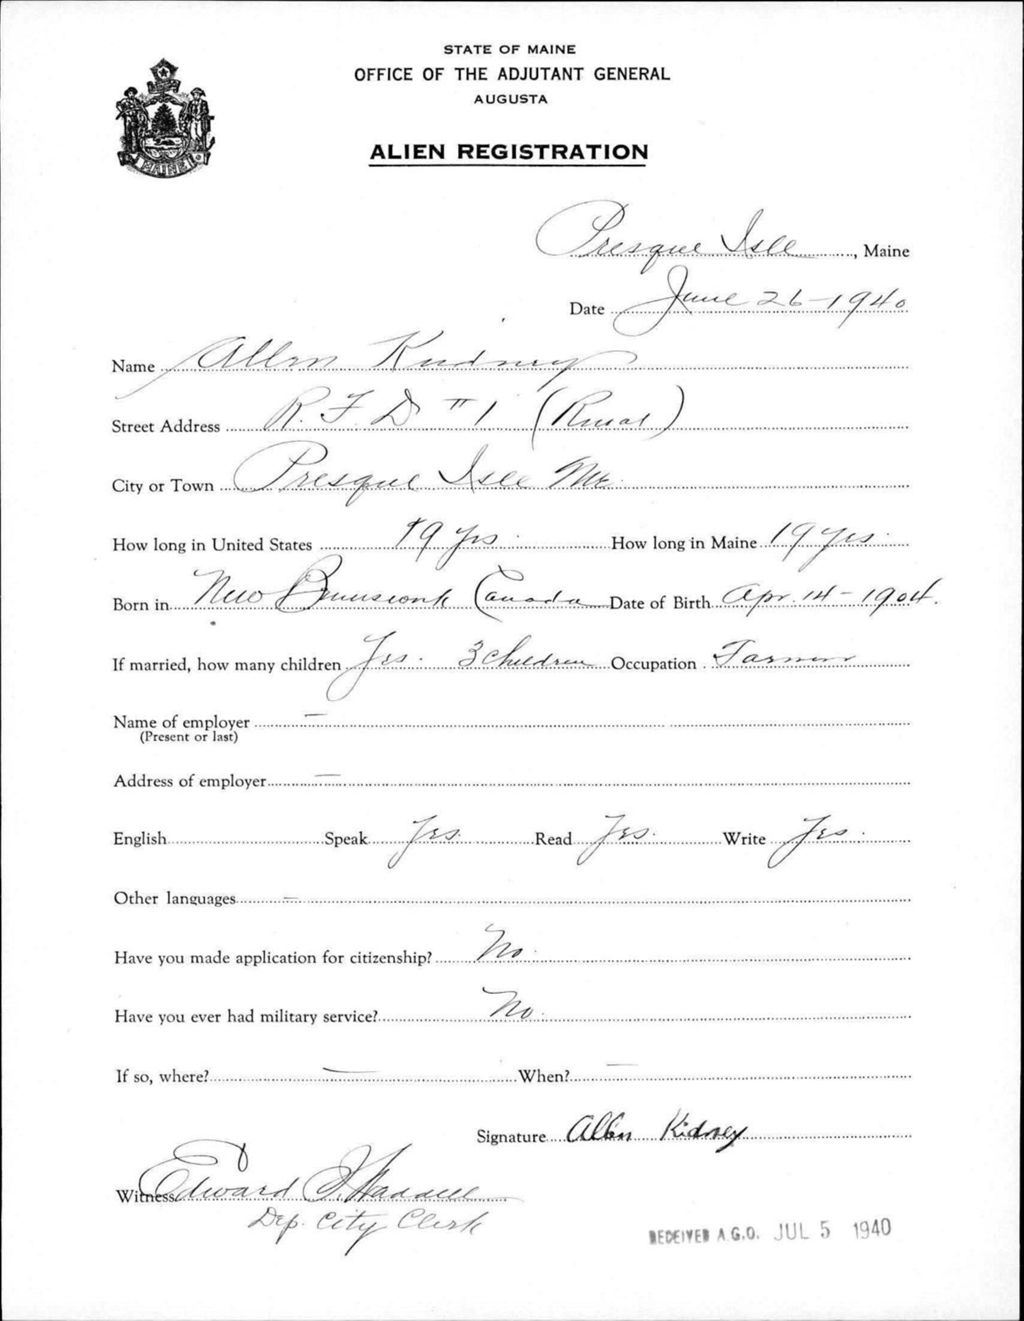 STATE OF MAINE
OFFICE OF THE ADJUTANT GENERAL
AUGUSTA
ALIEN REGISTRATION
MAINE
Presque Isle, Maine
Date June 26-1940
Name Allen Kidney
Street Address R.F.D #1 (Rural)
City or Town Presque Isle Me.
How long in United States 19 yrs. How long in Maine 19 yrs.
Born in New Brunswick Canada Date of Birth Apr. 14-1904.
If married, how many children Yes. 3 children Occupation Farmer
Name of employer —
(Present or last)
Address of employer —
English Speak Yes. Read Yes. Write Yes.
Other languages —
Have you made application for citizenship? No.
Have you ever had military service? No.
If so, where? — When? —
Signature Allen Kidney
Witness Edward
Dep. City Clerk
RECEIVED A.G.O. JUL 5 1940